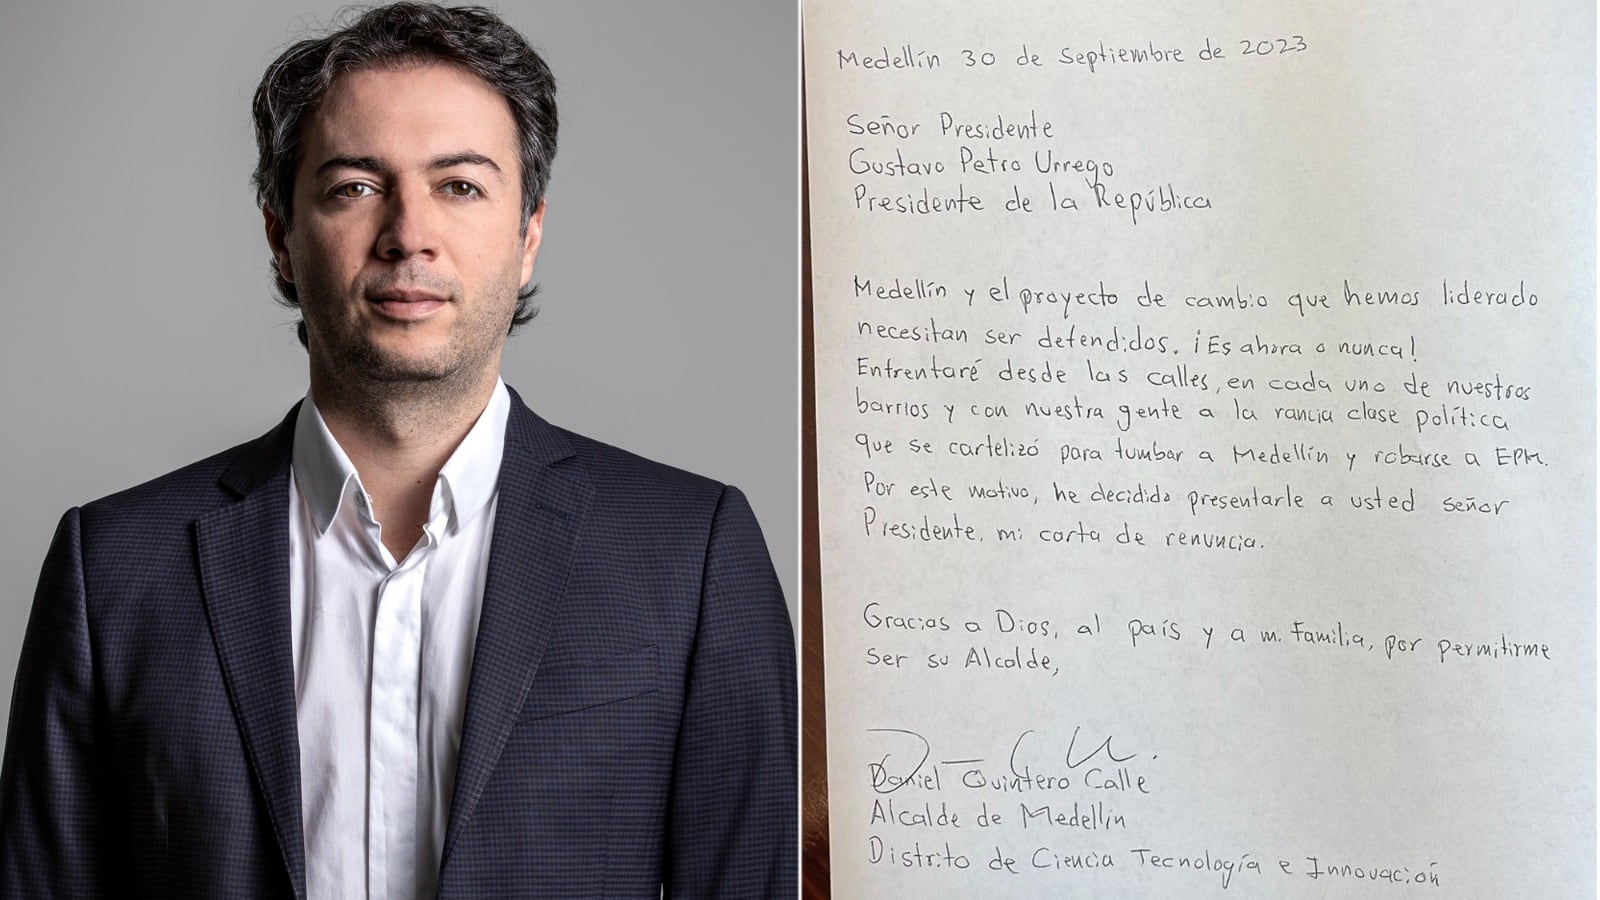 Medellín 30 de Septiembre de 2023
Señor Presidente
Gustavo Petro Urrego
Presidente de la República
Medellín y el proyecto de cambio que hemos liderado
necesitan ser defendidos. ¡Es ahora o nunca!
Enfrentaré desde las calles, en cada uno de nuestros
barrios y con nuestra gente a la rancia clase política
que se cartelizó para tumbar a Medellín y robarse a EPM.
Por este motivo, he decidido presentarle a usted señor
Presidente, mi carta de renuncia.
Gracias a Dios, al país y a mi Familia, por permitirme
ser su Alcalde,
Daniel Quintero Calle
Alcalde de Medellín
Distrito de Ciencia Tecnología e Innovación